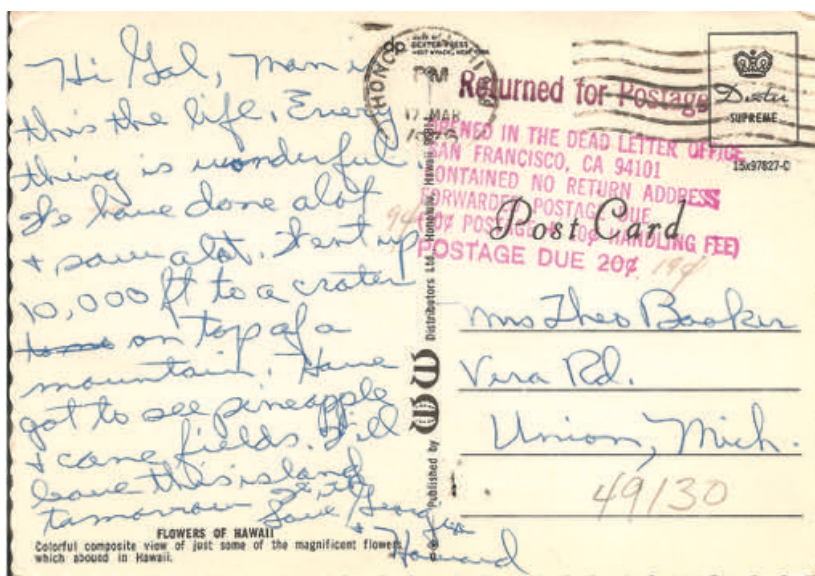 Hi Gal, Man is
this the life. Every
thing is wonderful.
We have done alot
+ saw alot. Went up
10,000 ft to a crater
on top of a
mountain. Have
got to see pineapple
+ cane fields. Will
leave this island
tomorrow
Love Georgia
+ Howard
FLOWERS OF HAWAII
Colorful composite view of just some of the magnificent flowers
which abound in Hawaii.
DEXTER PRESS
WEST NYACK, NEW YORK
Published by
Distributors Ltd., Honolulu, Hawaii
HONO
PM
17 MAR
Returned for Postage
OPENED IN THE DEAD LETTER OFFICE
SAN FRANCISCO, CA 94101
CONTAINED NO RETURN ADDRESS
FORWARDED POSTAGE DUE
POSTAGE HANDLING FEE)
POSTAGE DUE 20¢
19¢
Post Card
Dexter
SUPREME
15x97827-C
Mrs Theo Booker
Vera Rd.
Union, Mich.
49130